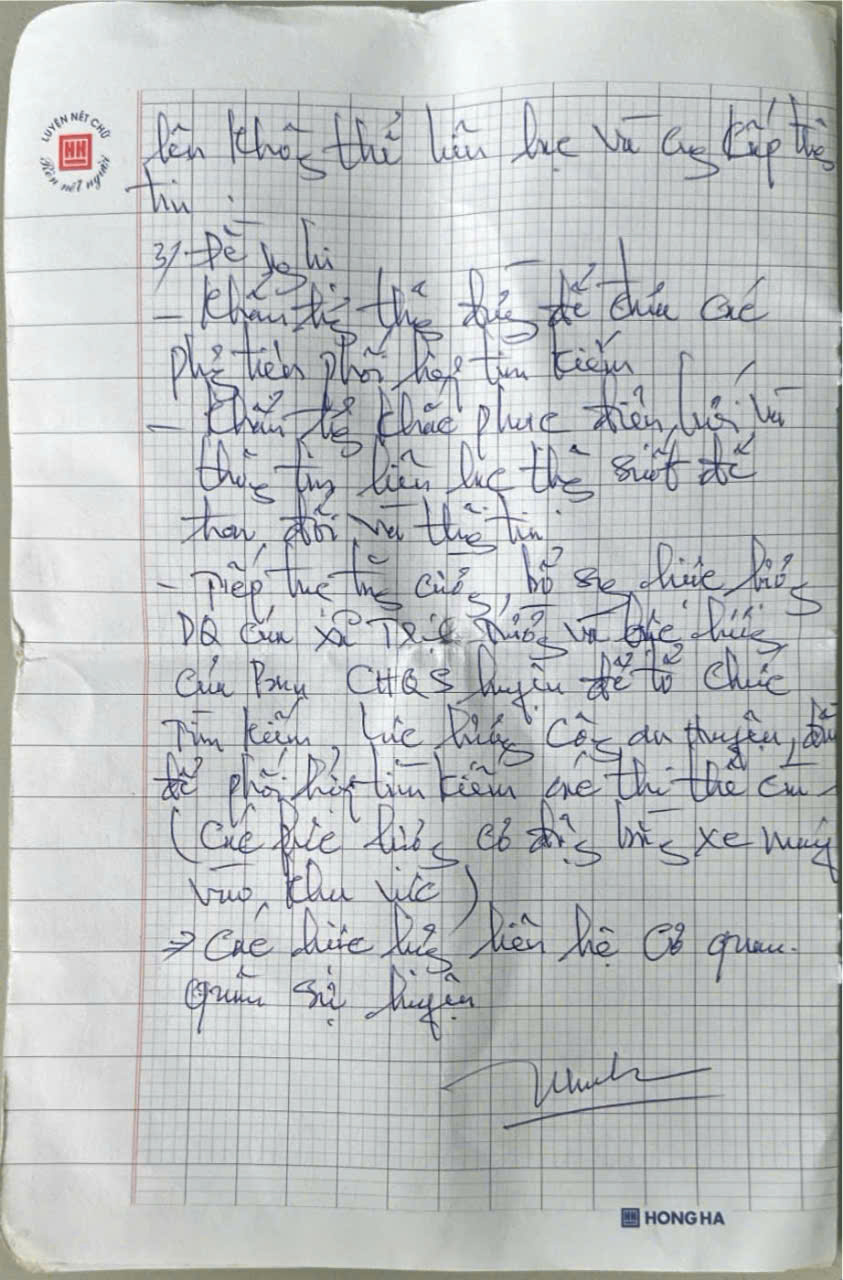 LUYỆN NÉT CHỮ
HH
Rèn nết người
lên không thể liên lạc và cung cấp thông
tin.
3/- Đề nghị
- Khẩn trương thông đường để đưa các
phương tiện phối hợp tìm kiếm
- Khẩn trương khắc phục điện lưới và
thông tin liên lạc thông suốt để
trao đổi và thông tin.
- Tiếp tục tăng cường, bổ sung lực lượng
DQ của xã và lực lượng
của Ban CHQS huyện để tổ chức
Tìm kiếm lực lượng Công an huyện,
để phối hợp tìm kiếm các thi thể còn
(Các lực lượng cơ động bằng xe máy
vào khu vực)
=> Các lực lượng liên hệ Cơ quan
quân sự huyện
HH HONG HA